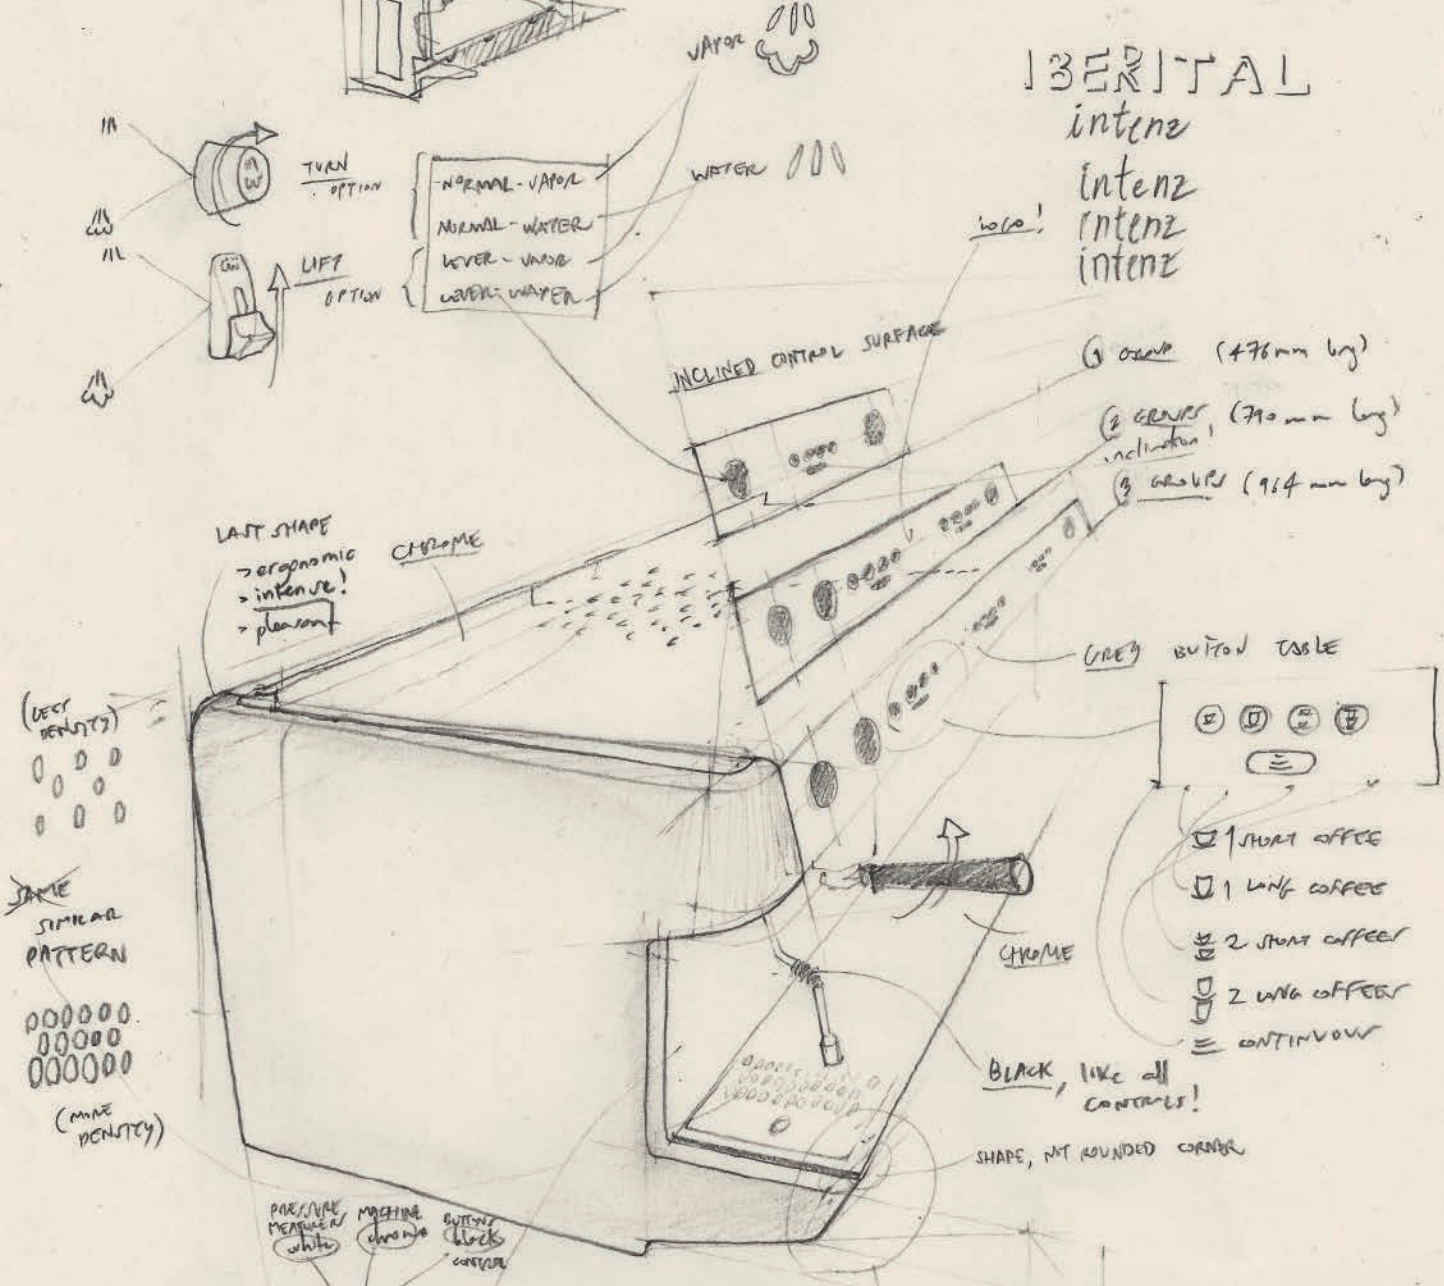 VAPOR
IBERITAL
intenz
intenz
intenz
intenz
LOGO!
WATER
TURN
OPTION
NORMAL - VAPOR
NORMAL - WATER
LEVER - VAPOR
LEVER - WATER
LIFT
OPTION
INCLINED CONTROL SURFACE
1 GROUP (476mm long)
2 GROUPS (790mm long)
inclination!
3 GROUPS (964mm long)
LAST SHAPE
> ergonomic
> intense!
> pleasant
CHROME
GREY BUTTON TABLE
(LESS
DENSITY)
1 SHORT COFFEE
1 LONG COFFEE
2 SHORT COFFEES
2 LONG COFFEES
CONTINUOUS
SAME
SIMILAR
PATTERN
(MORE
DENSITY)
CHROME
BLACK, like all
CONTROLS!
SHAPE, NOT ROUNDED CORNER
PRESSURE
MEASURERS
white
MACHINE
chrome
BUTTONS
black
CONTROL